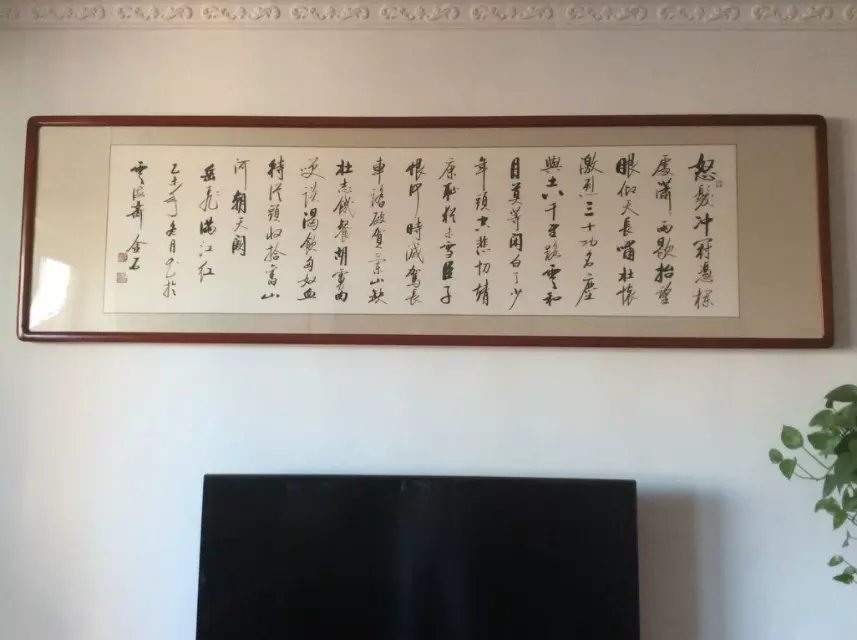 怒髮冲冠憑欄
處瀟雨歇抬望
眼仰天長嘯壮懷
激烈三十功名塵
與土八千里路雲和
月莫等闲白了少
年頭空悲切靖
康耻猶未雪臣子
恨何時滅駕長
車踏破賀蘭山缺
壮志饑餐胡虜肉
笑談渴飲匈奴血
待從頭收拾舊山
河朝天闕
岳飛滿江红
乙未年冬月书於
雲海齋 金石